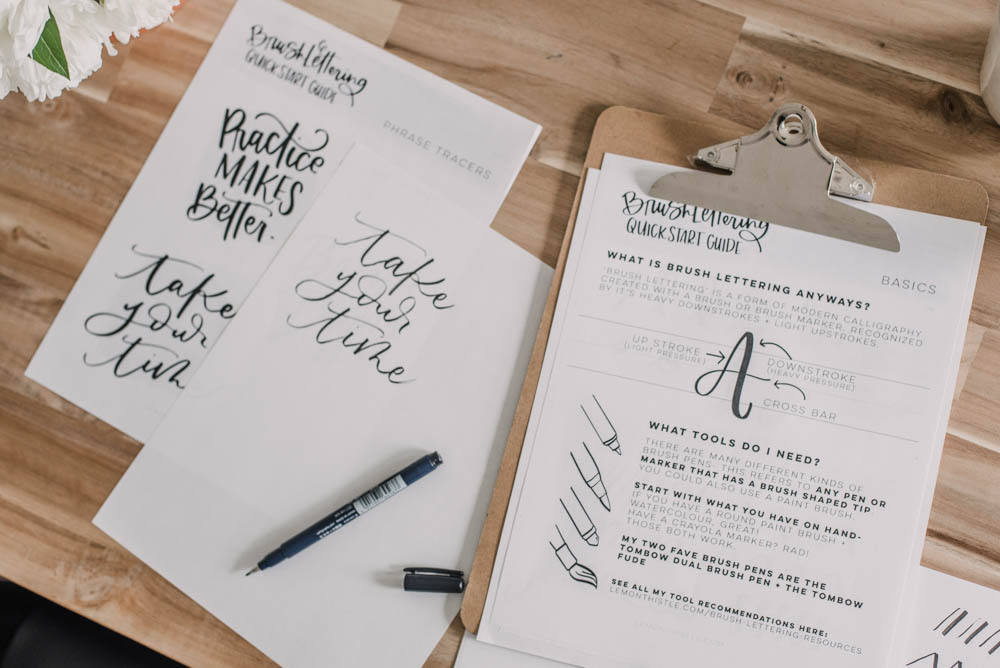 Brush Lettering
QUICKSTART GUIDE
PHRASE TRACERS
Practice
MAKES
Better.
take
your
time
take
your
time
Brush Lettering
QUICKSTART GUIDE
BASICS
WHAT IS BRUSH LETTERING ANYWAYS?
'BRUSH LETTERING' IS A FORM OF MODERN CALLIGRAPHY
CREATED WITH A BRUSH OR BRUSH MARKER, RECOGNIZED
BY IT'S HEAVY DOWNSTROKES + LIGHT UPSTROKES.
UP STROKE
(LIGHT PRESSURE)
A
DOWNSTROKE
(HEAVY PRESSURE)
CROSS BAR
WHAT TOOLS DO I NEED?
THERE ARE MANY DIFFERENT KINDS OF
BRUSH PENS- THIS REFERS TO ANY PEN OR
MARKER THAT HAS A BRUSH SHAPED TIP
YOU COULD ALSO USE A PAINT BRUSH.
START WITH WHAT YOU HAVE ON HAND-
IF YOU HAVE A ROUND PAINT BRUSH +
WATERCOLOUR, GREAT!
HAVE A CRAYOLA MARKER? RAD!
THOSE BOTH WORK.
MY TWO FAVE BRUSH PENS ARE THE
TOMBOW DUAL BRUSH PEN + THE TOMBOW
FUDE
SEE ALL MY TOOL RECOMMENDATIONS HERE:
LEMONTHISTLE.COM/BRUSH-LETTERING-RESOURCES